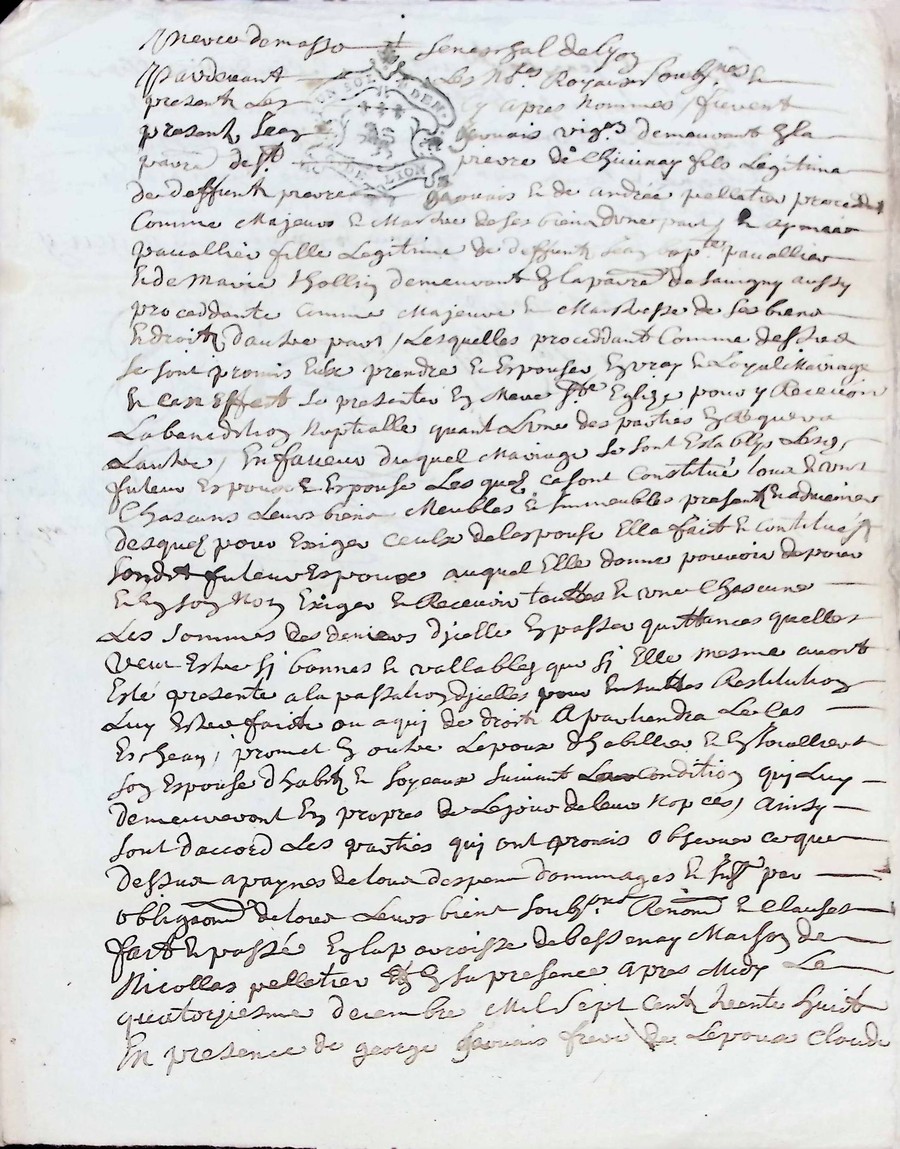 Pierre Demasso Seneschal de Lyon
Pardevant Les No.res Royaux Soubz.nes &
presents Les cy apres nommes / furent
presents Jean gervais vig.on demeurant En la
parr.e de S.t pierre de Chivinay fils Legitime
de deffunt pierre gervais & de andrée pelletier proced.t
Comme Majeur & Maistre de ses biens d'une part / & aymée
pavallier fille Legitime de deffunt Jean bap.te pavallier
& de Marie thollin demeurant En la parr.e de Savigny aussy
proceddante Comme Majeure & Maistresse de Ses biens
& droits d'autre part / Lesquelles proceddant Comme dessus
Se sont promis Eulx prendre & Espouser En vray & Loyal Mariage
& Ca En effect Se presenter En Mere S.te Eglize pour y Recevoir
La benediction Nuptialle quant L'une des parties En Requerra
L'autre / En faveur duquel Mariage Se sont Establys Lesd.
futeur Espoux & Espouse Lesquels Ce sont Constitué tous & uns
Chascuns Leurs biens Meubles & Immeubles presents & advenir
Desquels pour Exiger Ceulx de Lespouse Elle fait & Constitue
Sondit futeur Espoux auquel Elle donne pouvoir de pour
& En son Nom Exiger & Recevoir touttes & une Chascune
Les Sommes des deniers d'jcelle En passer quittances quelles
Veut Estre Si bonnes & vallables que Si Elle mesme avoit
Esté presente a la passation d'jcelles pour Ensuittes Restitution
Luy Estre faitte ou a qui de droit Apartiendra Le Cas
Escheant / promet En outre Lepoux d'habillier & En Joualliers
Son Espouse d'habits & Joyeaux Suivant Sa Condition qui Luy
Demeureront En propres de Le jour de leur Nopces / Ainsy
Sont d'accord Les parties qui ont promis observer Ce que
Dessus a paynes de tous despens Dommages & Int.ts par
obliga.on de tous Leurs biens Soubz.ns Renon.on & Clauses
fait & passé En la parroisse de bessenay Maison de
Nicollas pelletier & En Sa presence apres Midy Le
quatorziesme decembre Mil Sept Cents trente huit
En presence de george gervais frere de Lepoux Claude
UN SOL DEN.
G. DE LION